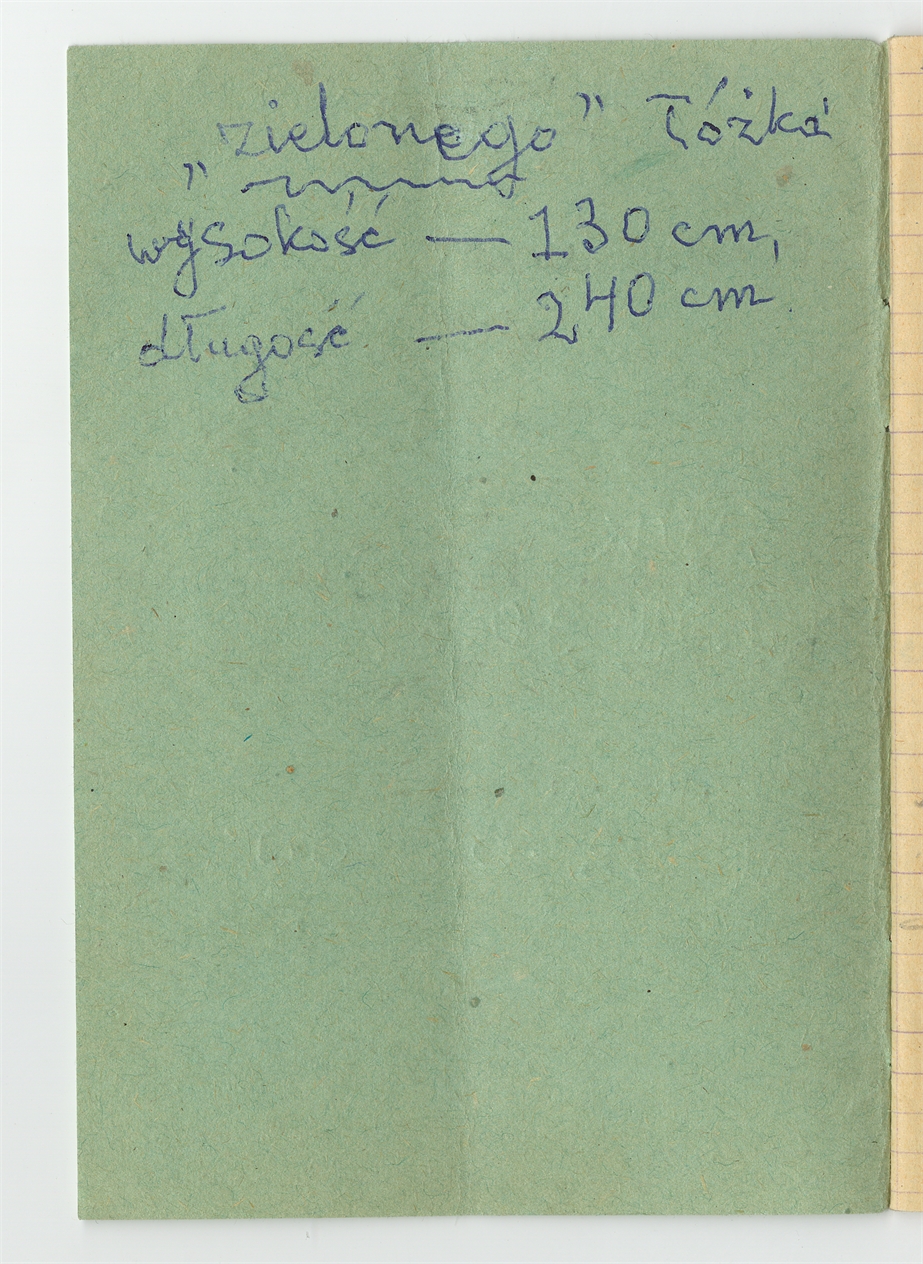 „zielonego” łóżka
wysokość — 130 cm,
długość — 240 cm